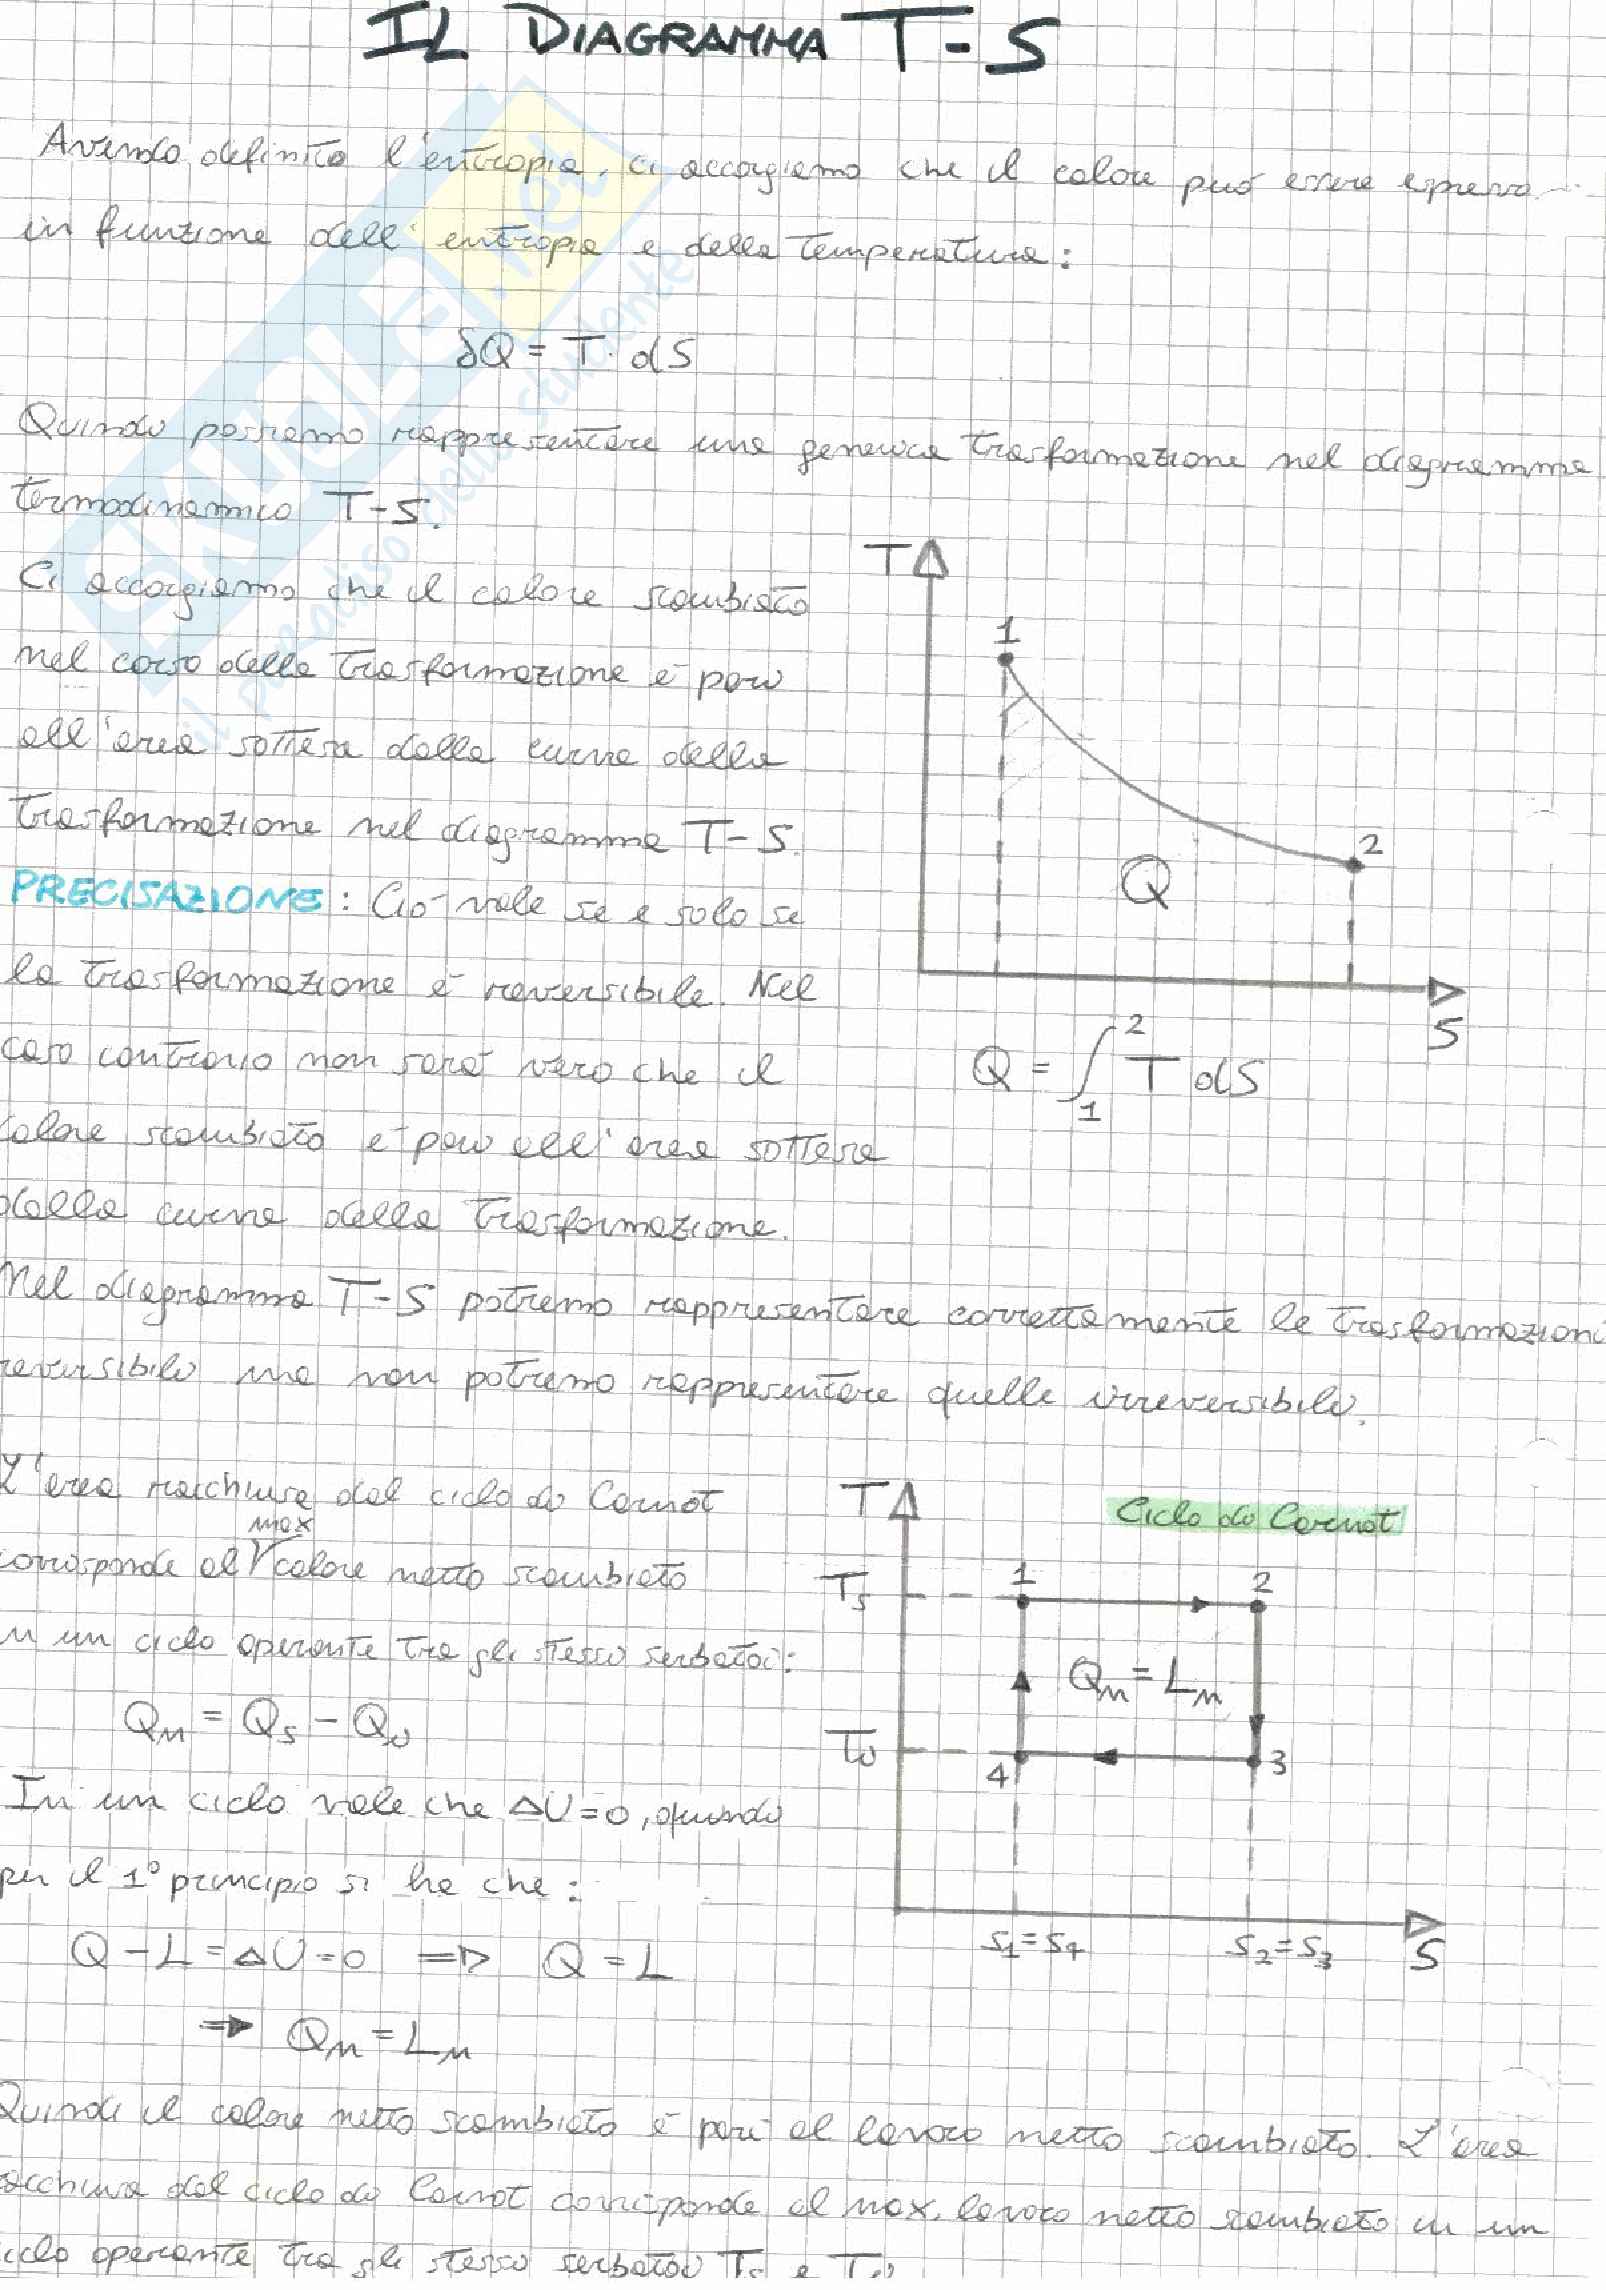 IL DIAGRAMMA T-S
Avendo definito l'entropia, ci accorgiamo che il calore può essere espresso
in funzione dell'entropia e della temperatura:
δQ = T · dS
Quindi possiamo rappresentare una generica trasformazione nel diagramma
termodinamico T-S.
Ci accorgiamo che il calore scambiato
nel corso della trasformazione è pari
all'area sottesa dalla curva della
trasformazione nel diagramma T-S.
PRECISAZIONE: Ciò vale se e solo se
la trasformazione è reversibile. Nel
caso contrario non sarà vero che il
calore scambiato è pari all'area sottesa
dalla curva della trasformazione.
T
1
2
Q
S
Q = ∫₁² T dS
Nel diagramma T-S potremo rappresentare correttamente le trasformazioni
reversibili ma non potremo rappresentare quelle irreversibili.
L'area racchiusa dal ciclo di Carnot
corrisponde al max calore netto scambiato
in un ciclo operante tra gli stessi serbatoi:
Qn = Qs - Qi
In un ciclo vale che ΔU=0, quindi
per il 1° principio si ha che:
Q - L = ΔU = 0 => Q = L
=> Qn = Ln
T
Ciclo di Carnot
Ts
1
2
Qn = Ln
Ti
4
3
S1=S4
S2=S3
S
Quindi il calore netto scambiato è pari al lavoro netto scambiato. L'area
racchiusa dal ciclo di Carnot corrisponde al max. lavoro netto scambiato in un
ciclo operante tra gli stessi serbatoi Ts e Ti.
SKUOLA.net
il paradiso dello studente